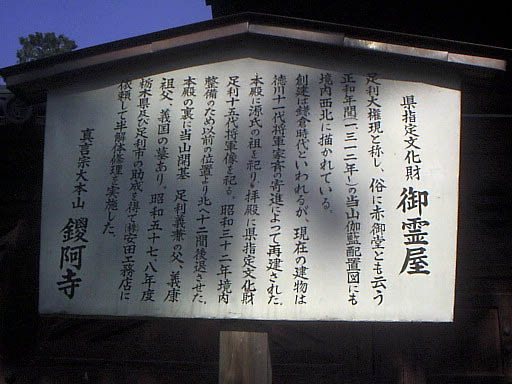 県指定文化財 御霊屋
足利大権現と称し、俗に赤御堂とも云う
正和年間(一三一二年)の当山伽藍配置図にも
境内西北に描かれている。
創建は鎌倉時代といわれるが、現在の建物は
徳川十一代将軍家斉の寄進によって再建された。
本殿に源氏の祖を祀り、拝殿に県指定文化財
足利十五代将軍像を祀る。昭和三十二年境内
整備のため以前の位置より北へ十二間後退させた。
本殿の裏に当山開基 足利義兼の父、義康
祖父、義国の墓あり。昭和五十七、八年度
栃木県及び足利市の助成を得て㈱安田工務店に
依頼して半解体修理を実施した。
真言宗大本山 鑁阿寺